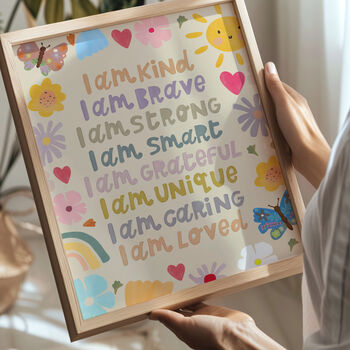 I am KIND
I am BRAVE
I am STRONG
I am SMART
I am GRATEFUL
I am UNIQUE
I am CARING
I am LOVED